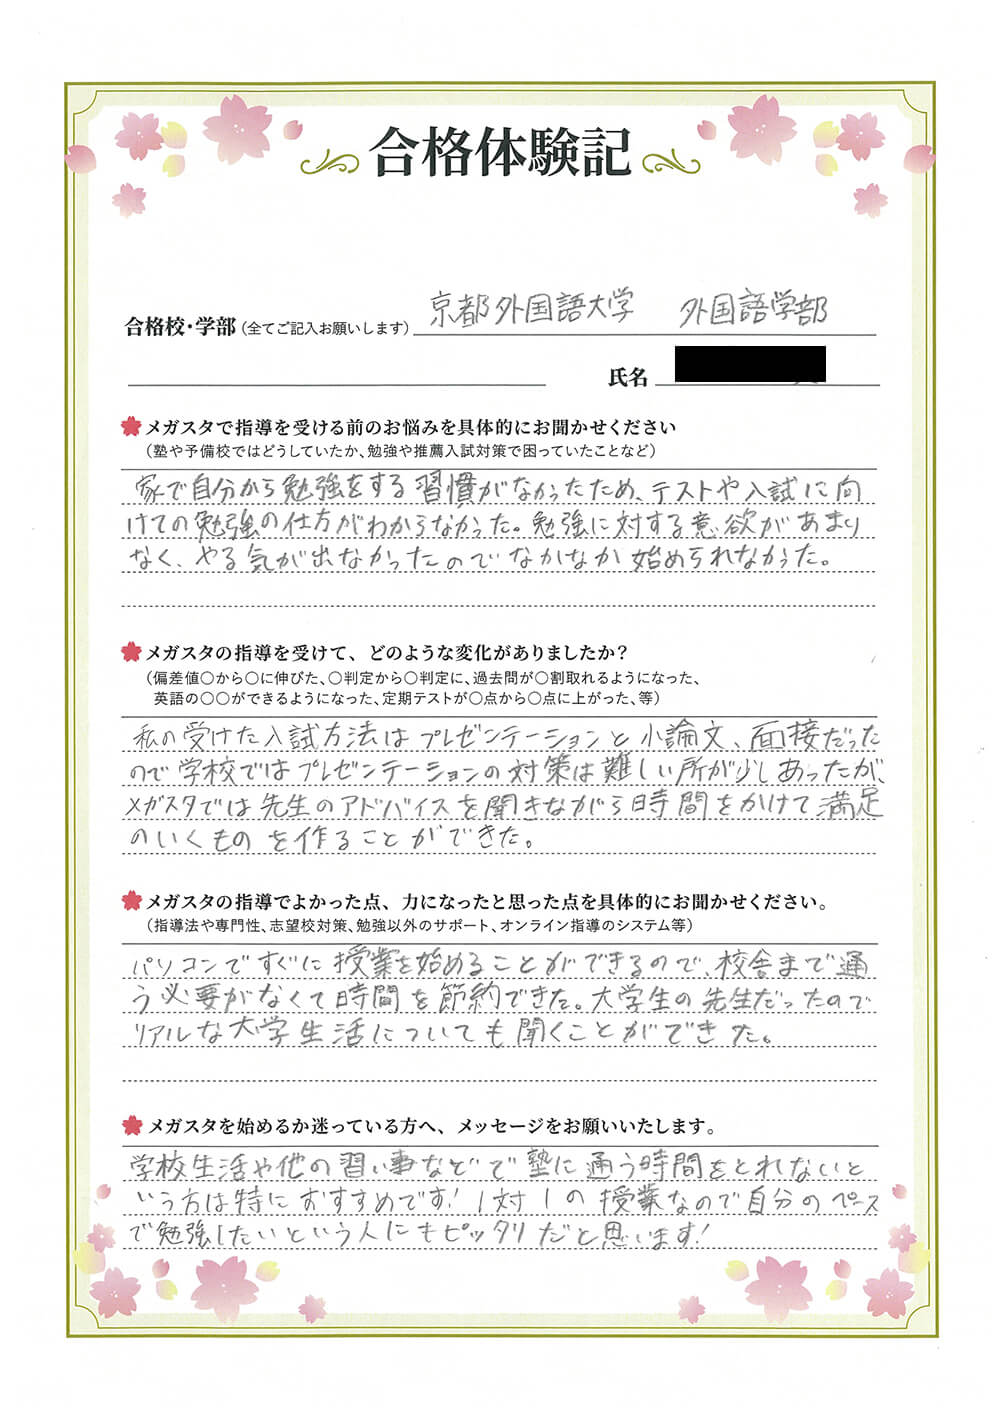 合格体験記
合格校・学部(全てご記入お願いします) 京都外国語大学 外国語学部
氏名
メガスタで指導を受ける前のお悩みを具体的にお聞かせください
(塾や予備校ではどうしていたか、勉強や推薦入試対策で困っていたことなど)
家で自分から勉強をする習慣がなかったため、テストや入試に向
けての勉強の仕方がわからなかった。勉強に対する意欲があまり
なく、やる気が出なかったのでなかなか始められなかった。
メガスタの指導を受けて、どのような変化がありましたか?
(偏差値〇から〇に伸びた、〇判定から〇判定に、過去問が〇割取れるようになった、
英語の〇〇ができるようになった、定期テストが〇点から〇点に上がった、等)
私の受けた入試方法はプレゼンテーションと小論文、面接だった
ので学校ではプレゼンテーションの対策は難しい所が少しあったが、
メガスタでは先生のアドバイスを聞きながら時間をかけて満足
のいくものを作ることができた。
メガスタの指導でよかった点、力になったと思った点を具体的にお聞かせください。
(指導法や専門性、志望校対策、勉強以外のサポート、オンライン指導のシステム等)
パソコンですぐに授業を始めることができるので、校舎まで通
う必要がなくて時間を節約できた。大学生の先生だったので
リアルな大学生活についても聞くことができた。
メガスタを始めるか迷っている方へ、メッセージをお願いいたします。
学校生活や他の習い事などで塾に通う時間をとれないと
いう方は特におすすめです!1対1の授業なので自分のペース
で勉強したいという人にもピッタリだと思います!